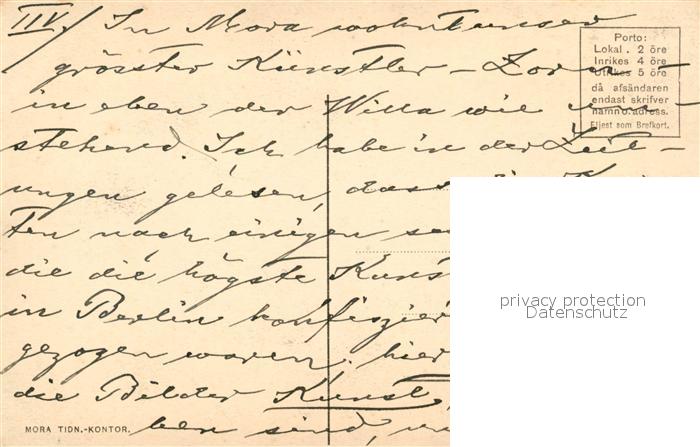 IIV/. In Mora wohnt unser
grösster Künstler – Zorn –
in eben der Willa wie
stehend. Ich habe in der Zeit-
ungen gelesen, dass
ten nach einigen
die die högste Kunst
in Berlin konfiszier
gezogen waren. hier
die Bilder Kunst,
ben sind,
Porto:
Lokal. 2 öre
Inrikes 4 öre
Utrikes 5 öre
då afsändaren
endast skrifver
namn o. adress.
Eljest som Brefkort.
privacy protection
Datenschutz
MORA TIDN.-KONTOR.